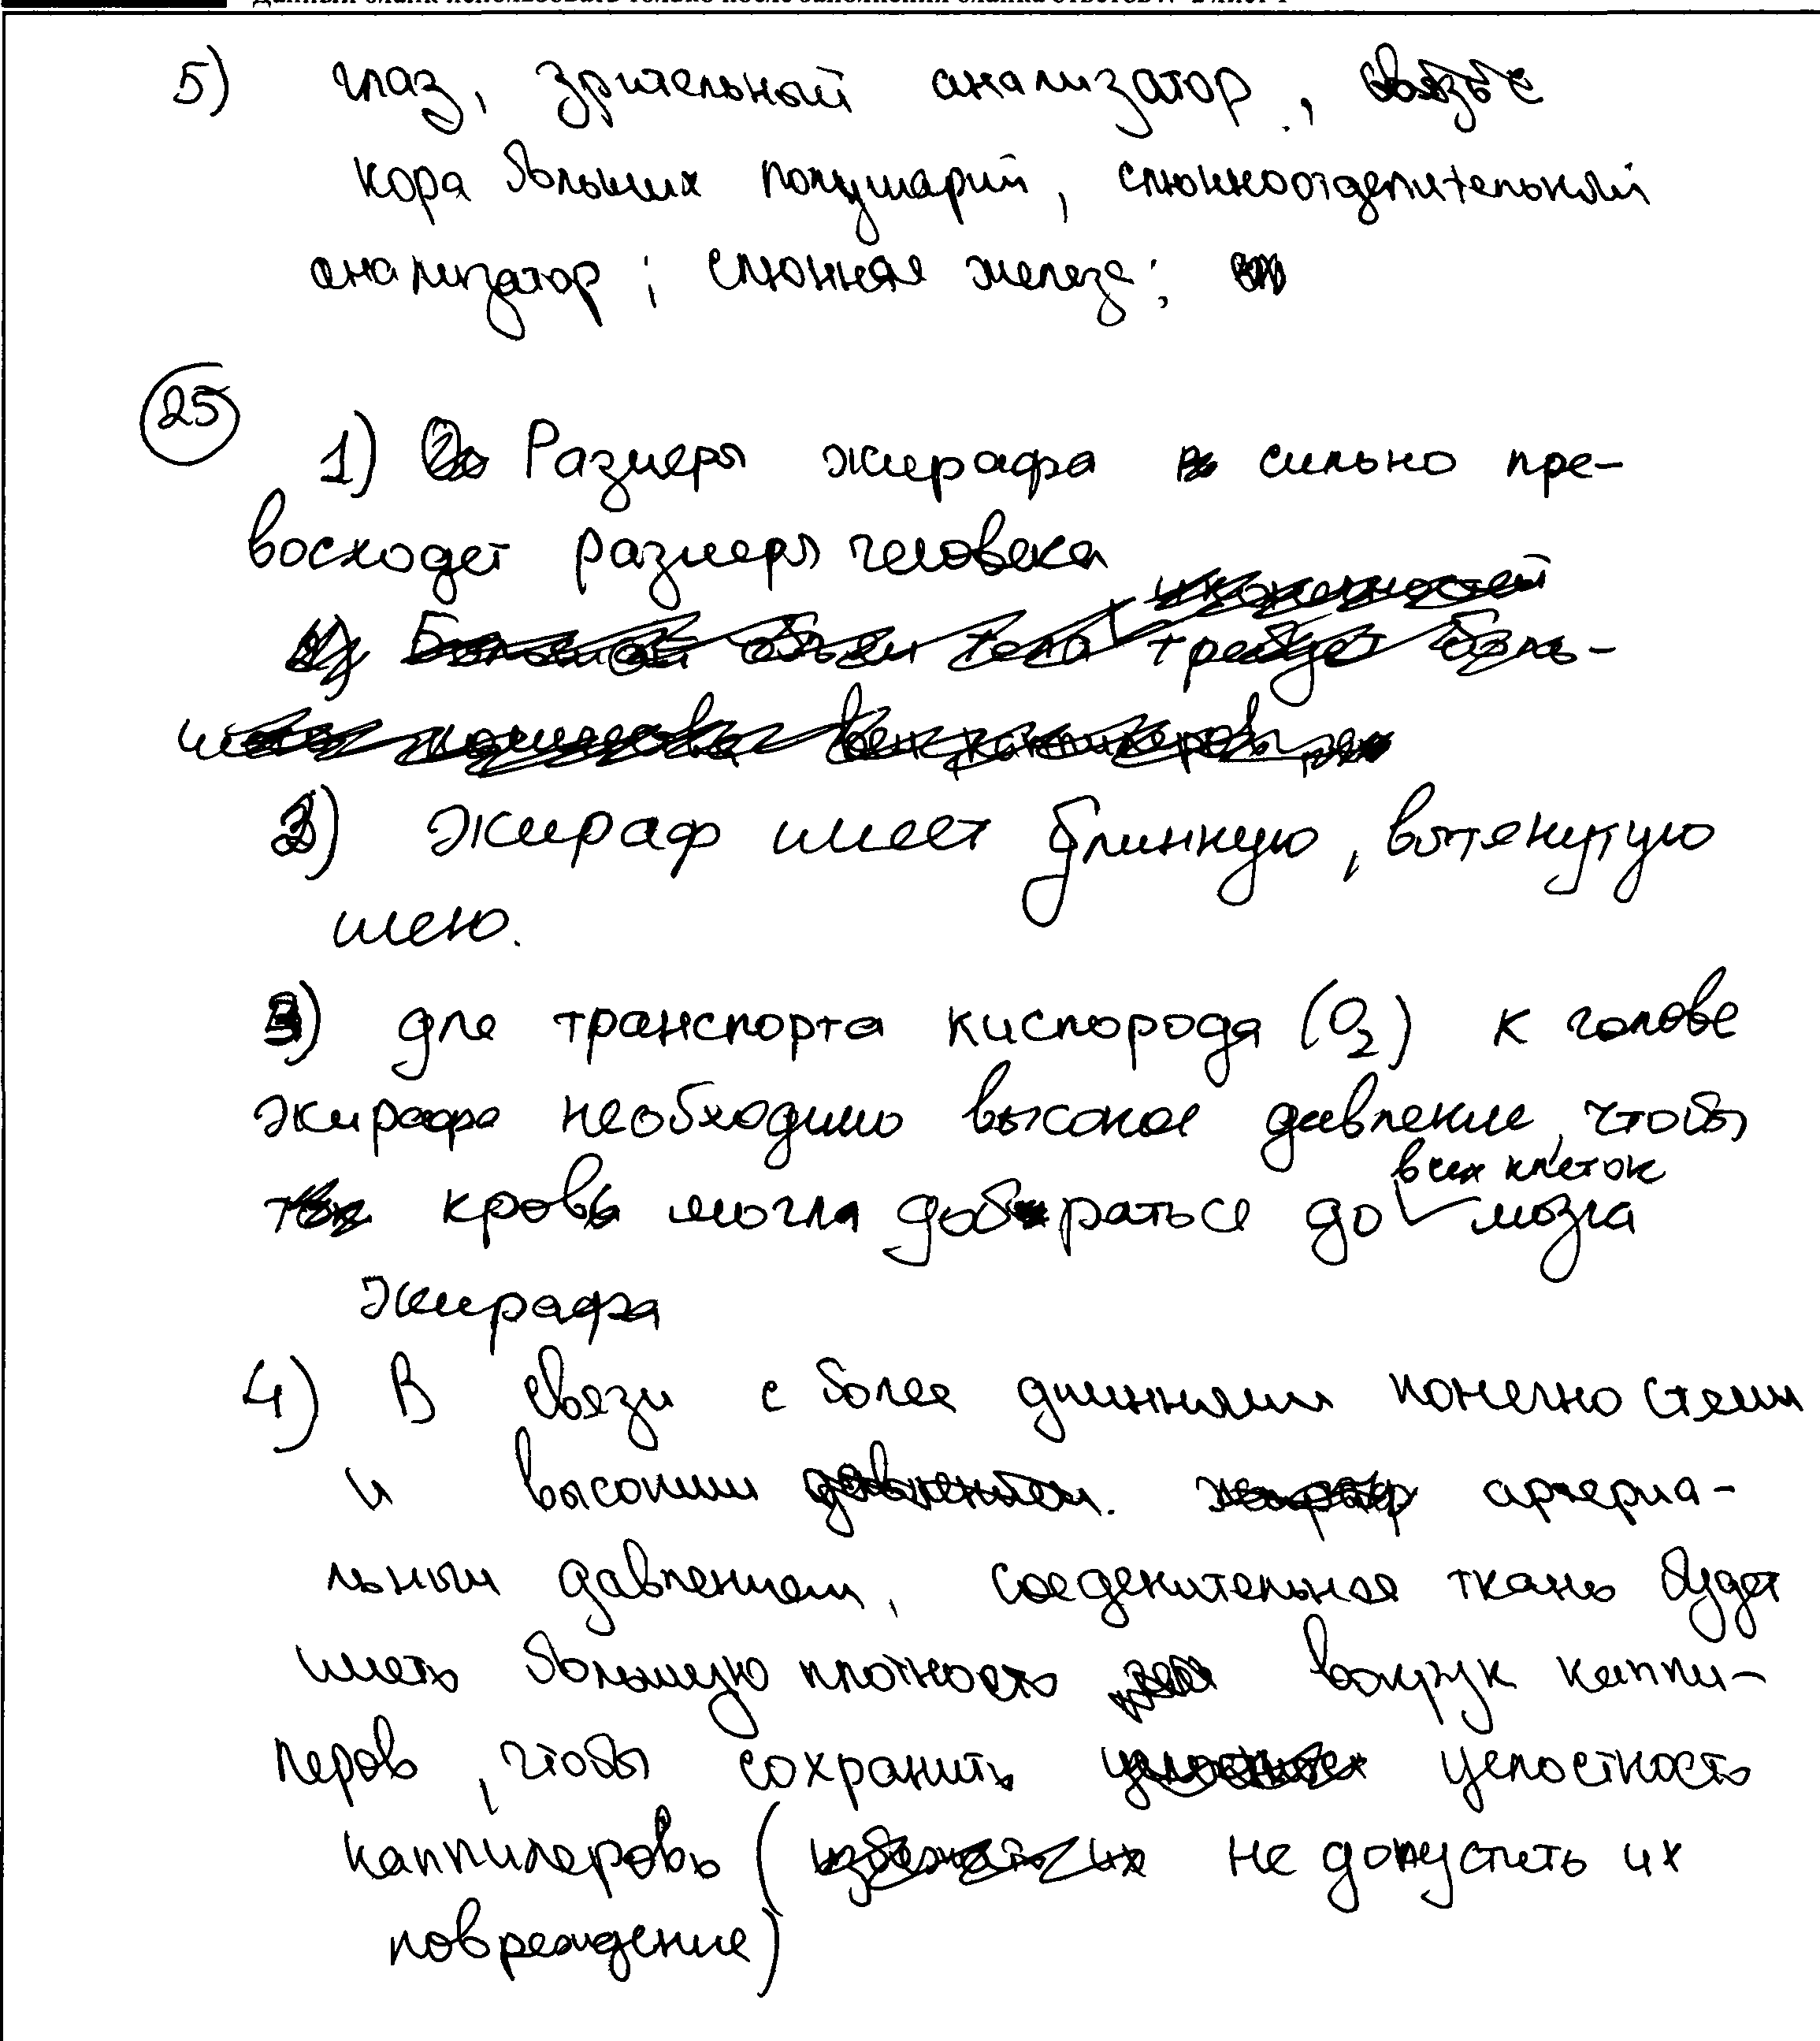 5) глаз, зрительный анализатор,
кора больших полушарий, слюноотделительный
анализатор; слюнная железа;
25
1) Размеры жирафа сильно пре-
восходет размеры человека
2) Жираф имеет длинную, вытянутую
шею.
3) для транспорта кислорода (O2) к голове
жирафа необходимо высокое давление, чтобы
всех клеток
кровь могла добраться до мозга
жирафа
4) В связи с более длинными конечностями
и высоким артериа-
льным давлением, соеденительная ткань будет
иметь большую плотность вокруг каппи-
леров, чтобы сохранить целостность
каппилеровь ( не допустить их
повреждение)